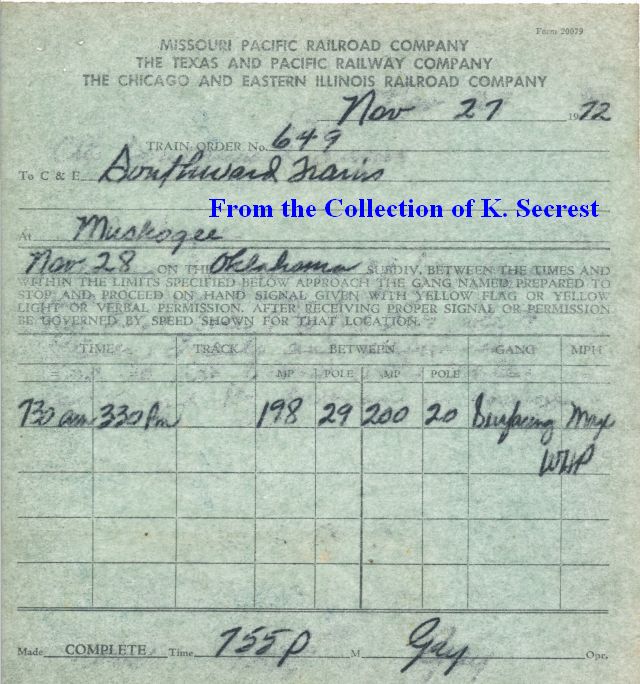 Form 20079
MISSOURI PACIFIC RAILROAD COMPANY
THE TEXAS AND PACIFIC RAILWAY COMPANY
THE CHICAGO AND EASTERN ILLINOIS RAILROAD COMPANY
Nov 27 1972
TRAIN ORDER No. 649
To C & E Southward Trains
From the Collection of K. Secrest
At Muskogee
Nov 28 ON THE Oklahoma SUBDIV. BETWEEN THE TIMES AND
WITHIN THE LIMITS SPECIFIED BELOW APPROACH THE GANG NAMED PREPARED TO
STOP AND PROCEED ON HAND SIGNAL GIVEN WITH YELLOW FLAG OR YELLOW
LIGHT OR VERBAL PERMISSION. AFTER RECEIVING PROPER SIGNAL OR PERMISSION
BE GOVERNED BY SPEED SHOWN FOR THAT LOCATION.
TIME TRACK BETWEEN GANG MPH
MP POLE MP POLE
730 am 330 Pm 198 29 200 20 Surfacing Max
WHP
Made COMPLETE Time 755 P M Gay Opr.